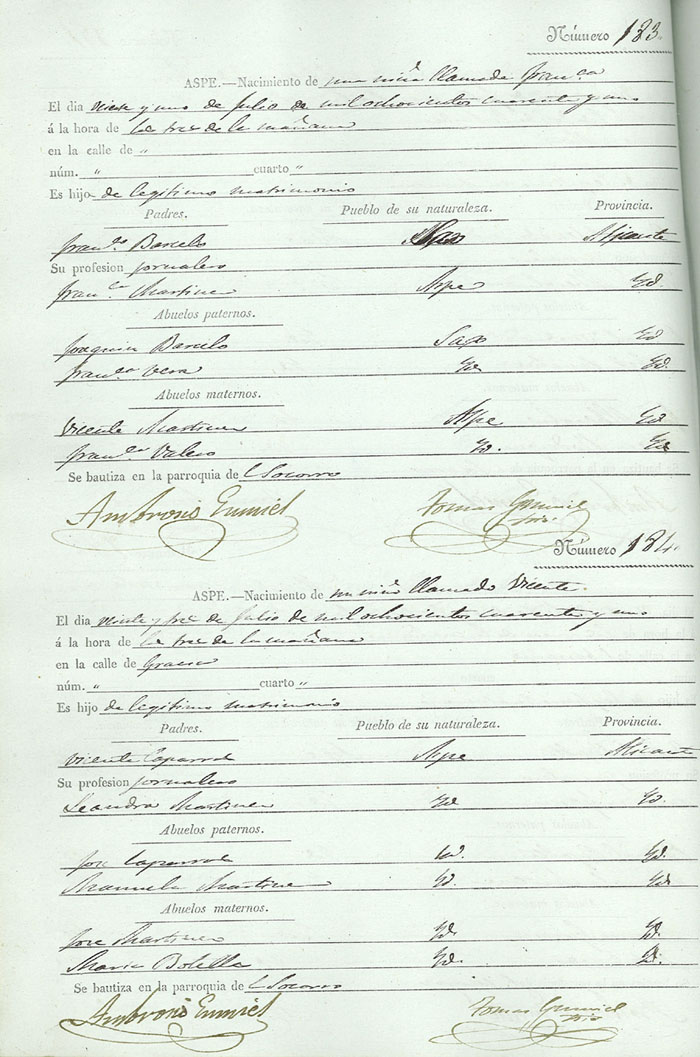 Número 183.
ASPE.—Nacimiento de una niña llamada Fran.ca
El dia veinte y uno de Julio de mil ochocientos cuarenta y uno
á la hora de las tres de la mañana
en la calle de "
núm. " cuarto "
Es hijo de legitimo matrimonio
Padres. Pueblo de su naturaleza. Provincia.
Fran.co Barcelo Sax Alicante
Su profesion jornalero
Fran.ca Martinez Aspe Yd.
Abuelos paternos.
Joaquin Barcelo Sax Yd
Fran.ca Vera Yd Yd.
Abuelos maternos.
Vicente Martinez Aspe Yd
Fran.ca Valero Yd. Yd
Se bautiza en la parroquia de l Socorro
Ambrosio
Tomas
Número 184.
ASPE.—Nacimiento de un niño llamado Vicente.
El dia veinte y tres de Julio de mil ochocientos cuarenta y uno
á la hora de las tres de la mañana
en la calle de
núm. " cuarto "
Es hijo de legitimo matrimonio
Padres. Pueblo de su naturaleza. Provincia.
Vicente Caparros Aspe Alicante
Su profesion jornalero
Leandra Martinez Yd Yd.
Abuelos paternos.
Jose Caparros Yd. Yd.
Manuela Martinez Yd. Yd
Abuelos maternos.
Jose Martinez Yd. Yd.
Maria Botella Yd. Yd.
Se bautiza en la parroquia de l Socorro
Ambrosio
Tomas